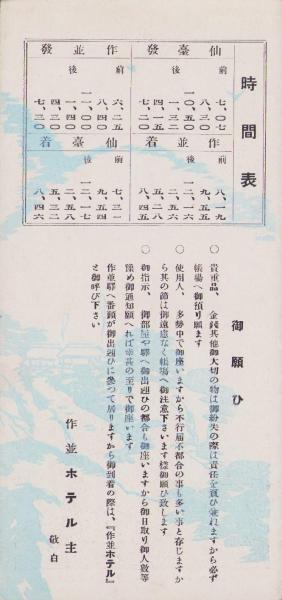 時間表
仙臺發
前
七、〇七
八、三〇
一〇、五〇
後
一、三二
四、一五
七、二〇
作並着
前
八、一九
九、五五
後
八、四五
作並發
前
六、二五
八、四〇
一一、〇〇
後
一、四〇
四、三〇
七、三〇
仙臺着
前
七、三一
後
一二、一六
二、五八
八、四六
御願ひ
〇 貴重品、金錢其他御大切の物は御紛失の際は責任を負ひ兼れますから必ず
帳場へ御預り願ます
〇 使用人、多勢中で御座いますから不行屆不都合の事も多い事と存じますか
ら其の節は御遠慮なく帳場へ御注意下さいます樣御願ひ致します
〇 御指示、御部屋や驛へ御出迎ひの都合も御座いますから御日取り御人數等
豫め御通知願へれば幸甚の至りで御座います
作並驛へ番頭が御出迎ひに參つて居りますから御到着の際は、『作並ホテル』
と御呼び下さい
作並ホテル主
敬白